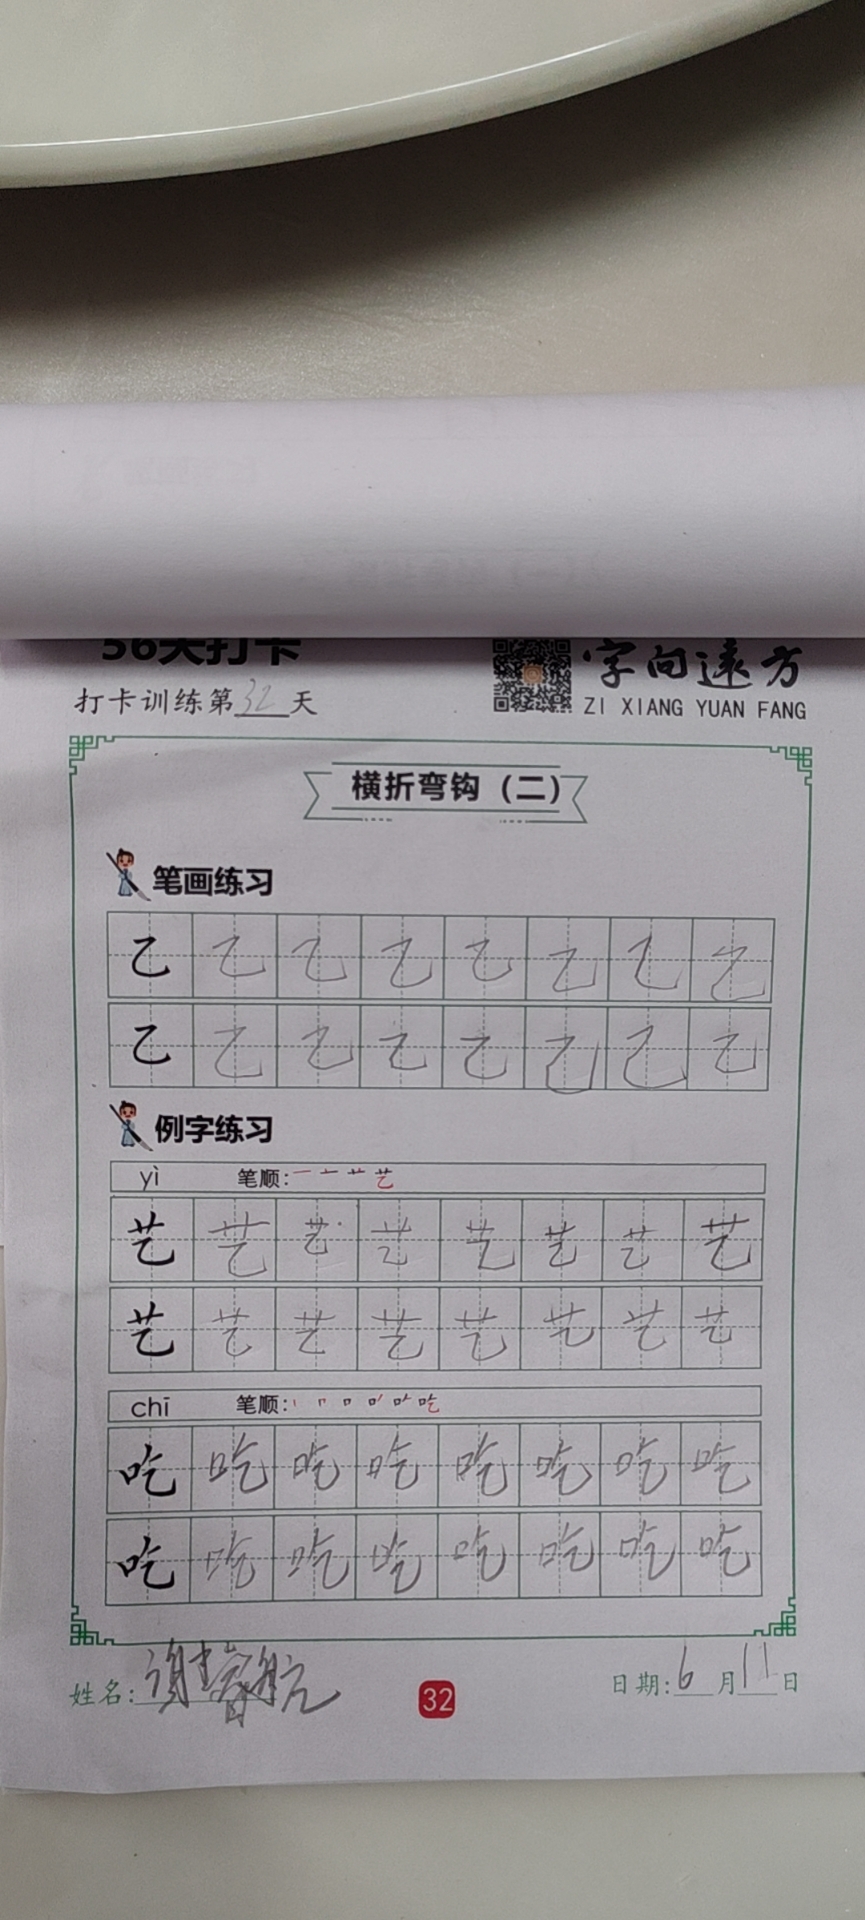 56天打卡
打卡训练第32天
字向远方
ZI XIANG YUAN FANG
横折弯钩（二）
笔画练习
乙 乙 乙 乙 乙 乙 乙 乙
乙 乙 乙 乙 乙 乙 乙 乙
例字练习
yì 笔顺：一 艹 艺
艺 艺 艺 艺 艺 艺 艺 艺
艺 艺 艺 艺 艺 艺 艺 艺
chī 笔顺：丨 口 吃
吃 吃 吃 吃 吃 吃 吃 吃
吃 吃 吃 吃 吃 吃 吃 吃
姓名：谢睿航
32
日期：6月11日